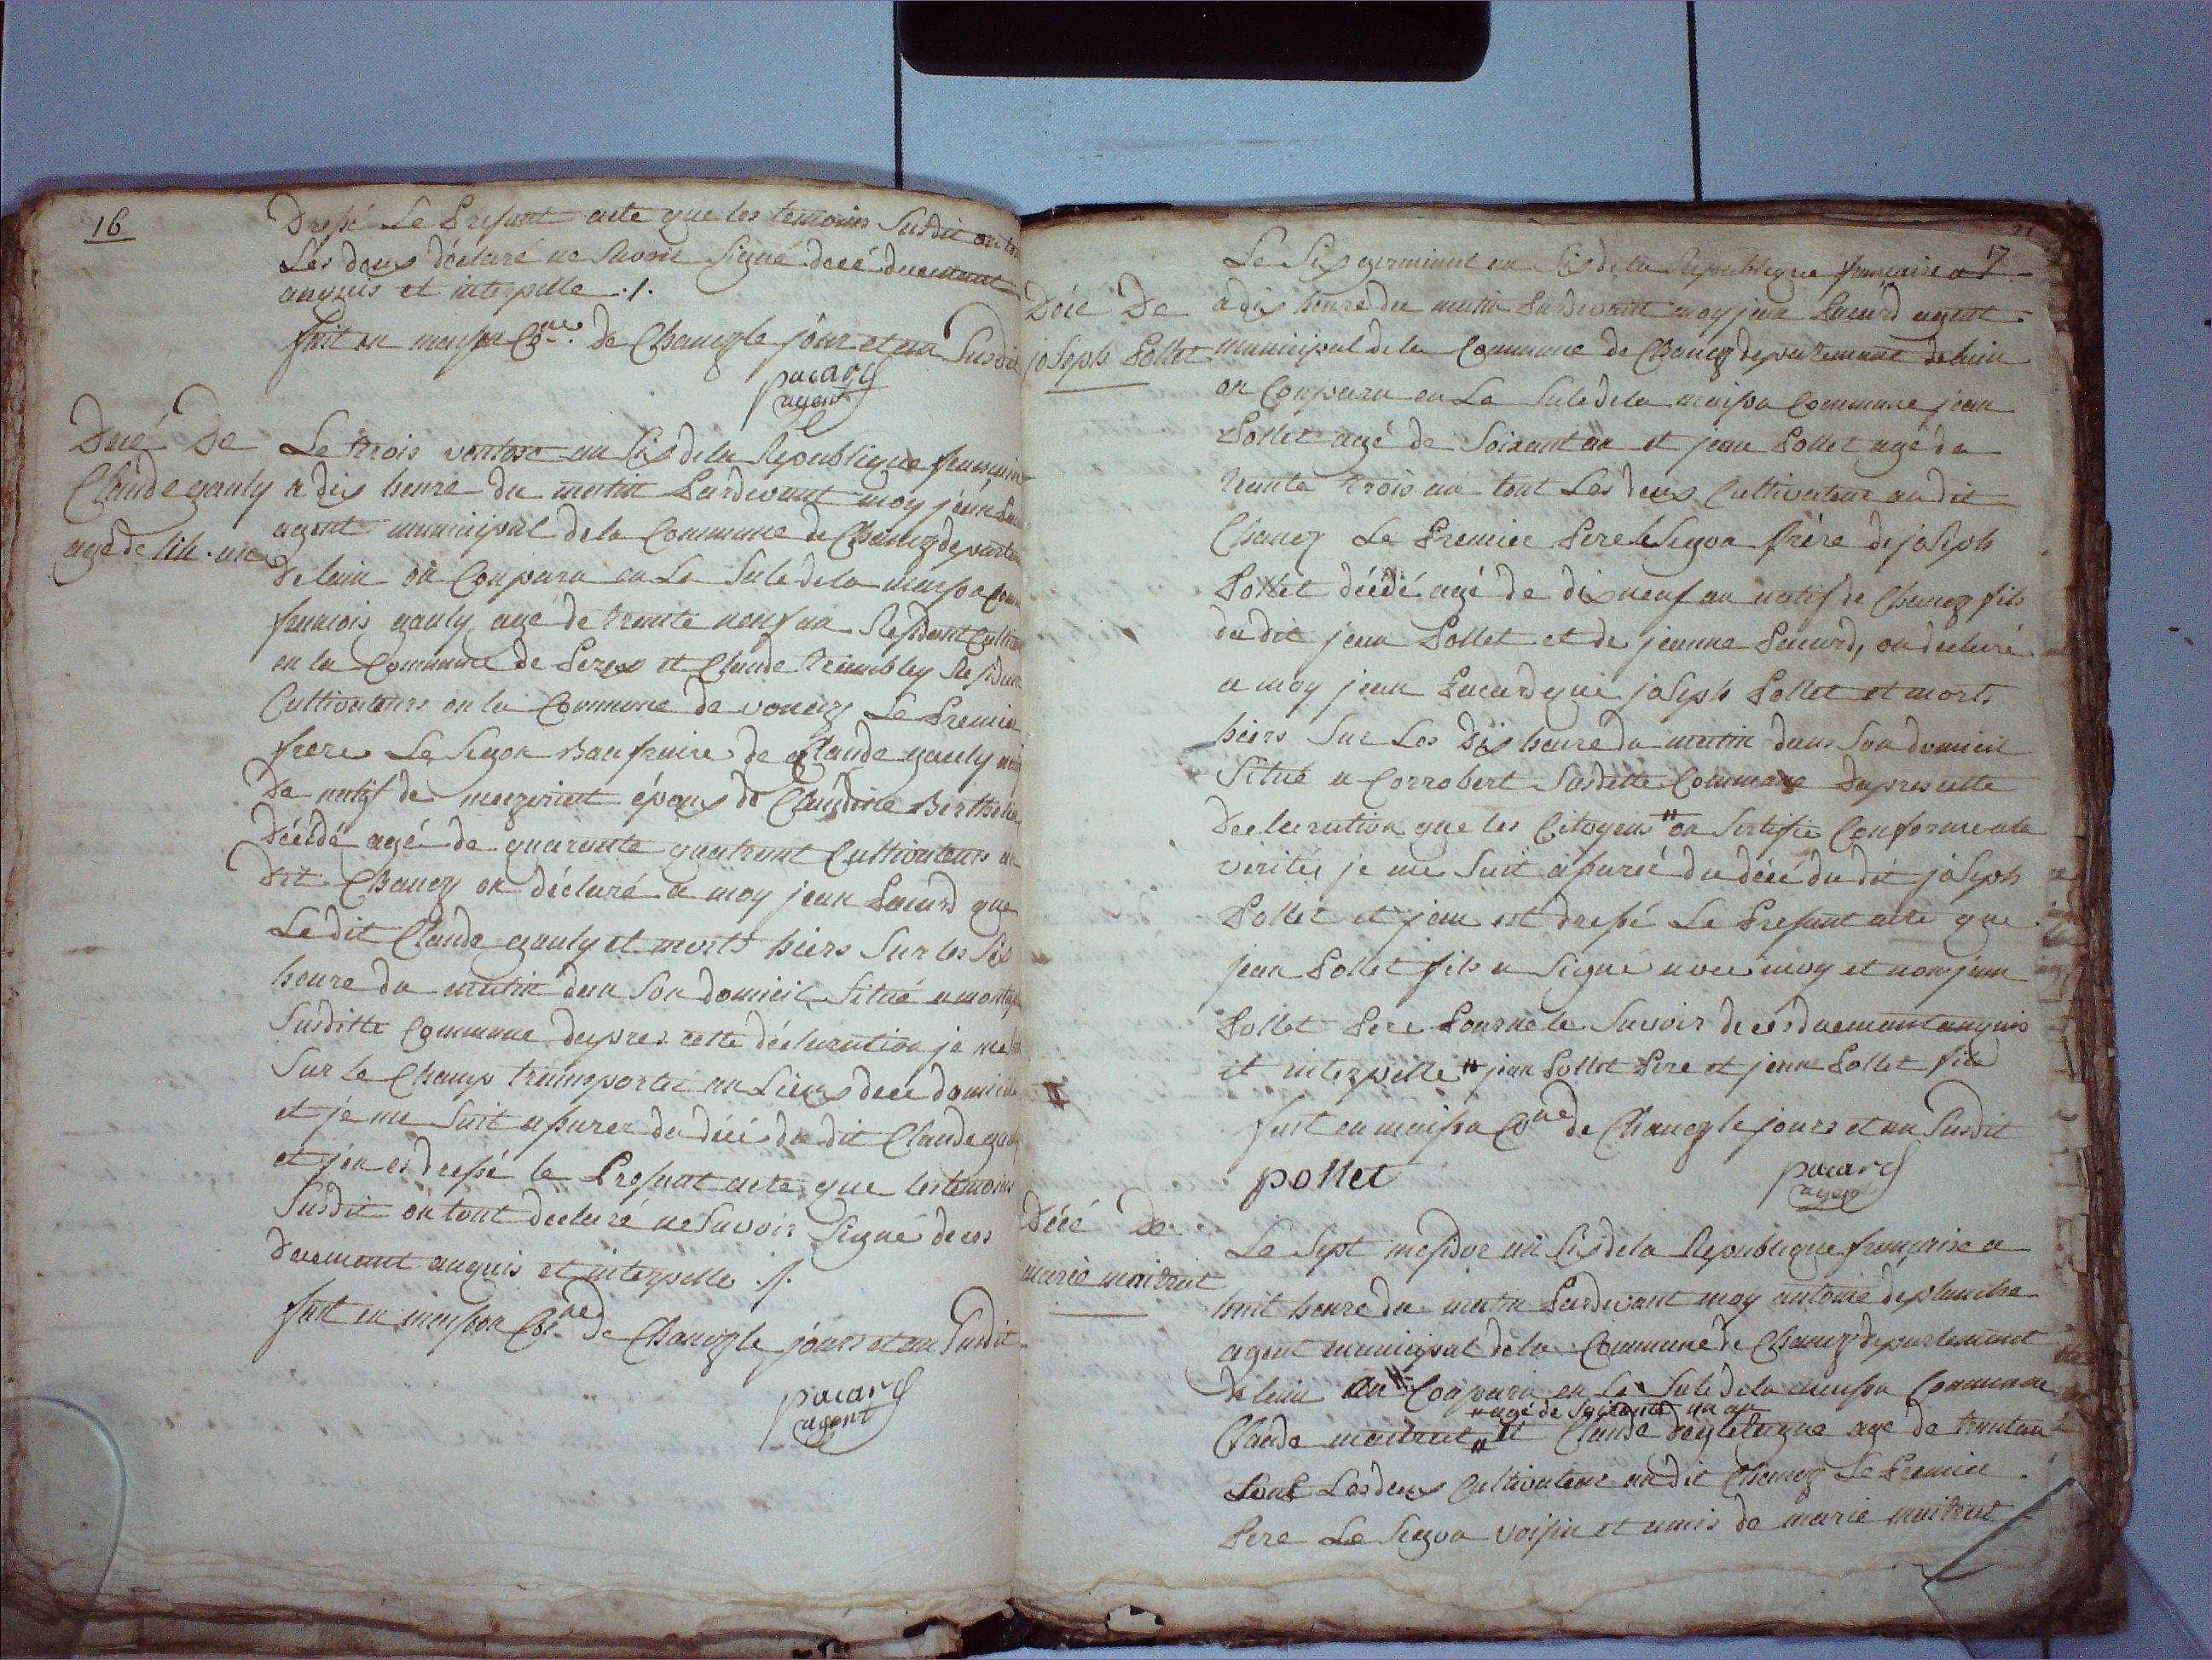 16
Dressé Le Present acte que les temoins Susdit on tou
Les deux déclaré ne Savoir Signé decé duemant
anquis et interpelle ./.
fait en maison Cne de Chanoz le jour et an Susdit
pacard
agent
Décé De
Claude gauly
agé de 44 an
Le trois ventose an Six de la Republique francaise
a dix heure du matin Pardevant moy jean Pacard
agent municipal de la Commune de Chanoz departem
de lain on Conparu en La Sale de la maison Comm
francois gauly age de trente neuf an Residant Cultiv
en la Commune de Perex et Claude trembley Residant
Cultivateurs en la Commune de vonaz Le Premier
frere Le Segon Baufraire de Claude gauly
De natif de mezeriat époux de Claudine Berthelie
Décédé agé de quarante quatrant Cultivateurs au
dit Chanoz on déclaré a moy jean Pacard que
Ledit Claude gauly et morts hiers Sur les Six
heure du matin dan Son domicil Situé a
Susditte Commune depres cette déclaration je me
Sur le Champ transporter au Lieux dece domicile
et je me Suit asurer du décé du dit Claude gauly
et jén es dressé le Present acte que les temoins
Susdit on tout déclaré ne Savoir Signé de ces
duemant anquis et interpelle ./.
fait en maison Cne de Chanoz le jours et an Susdit
pacard
agent
17
Décé De
joseph Pollet
Le Six germinal an Six de la Republique francaise a
a dix heure du matin Pardevant moy jean Pacard agent
municipal de la Commune de Chanoz departemant de lain
on Conparu en La Sale de la maison Commune jean
Pollet agé de Soixant an et jean Pollet agé de
trente trois an tout Les deux Cultivateur au dit
Chanoz Le Premier Pere le Segon frére de joseph
Pollet décédé agé de dix neuf an natif de Chanoz fils
du dit jean Pollet et de jeanne Pacard, on declaré
a moy jean Pacard que joseph Pollet et morts
hiers Sur Les Dix heure du matin dans Son domicil
Situé a Corrobert Susditte Commune Dapres cette
declaration que les Citoyens " on Sertifie Conforme a la
vérités je me Suit asurée du décé du dit joseph
Pollet et jean est dressé Le Present acte que
jean Pollet fils a Signé avec moy et non jean
Pollet Pere Pour ne le Savoir de ces duemant anquis
et interpelle " jean Pollet Pere et jean Pollet fils
fait en maison Cne de Chanoz le jours et an Susdit
pollet
pacard
agent
Décé De
marie maitrait
Le Sept mesidor an Six de la Republique française a
huit heure du matin Pardevant moy antoine deplanche
agent municipal de la Commune de Chanoz departement
de lain on Conparu en La Sale de la maison Commune
" agé de Soixante un an
Claude maitrait " et Claude age de trentan
tout Les deux Cultivateur au dit Chanoz Le Premier
Pere Le Segon voisin et amis de marie maitrait